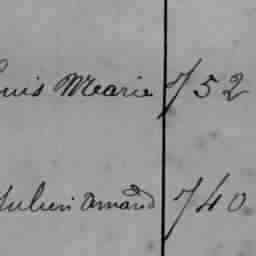 ouis Marie 752
Julien Amand 740